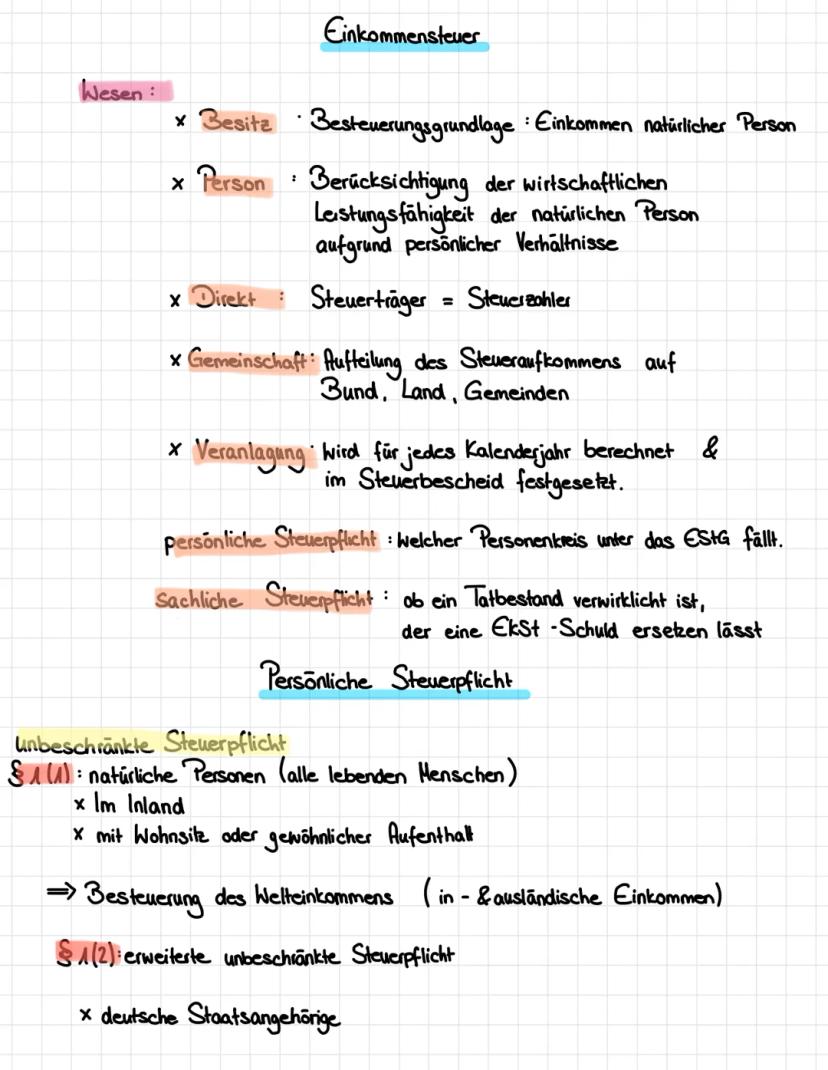 Einkommensteuer
Wesen :
x Besitz : Besteuerungsgrundlage : Einkommen natürlicher Person
x Person : Berücksichtigung der wirtschaftlichen
Leistungsfähigkeit der natürlichen Person
aufgrund persönlicher Verhältnisse
x Direkt : Steuerträger = Steuerzahler
x Gemeinschaft : Aufteilung des Steueraufkommens auf
Bund, Land, Gemeinden
x Veranlagung : Wird für jedes Kalenderjahr berechnet &
im Steuerbescheid festgesetzt.
persönliche Steuerpflicht : Welcher Personenkreis unter das EStG fällt.
Sachliche Steuerpflicht : ob ein Tatbestand verwirklicht ist,
der eine EkSt - Schuld ersetzen lässt
Persönliche Steuerpflicht
unbeschränkte Steuerpflicht
§ 1 (1) : natürliche Personen (alle lebenden Menschen)
x Im Inland
x mit Wohnsitz oder gewöhnlicher Aufenthalt
⇒ Besteuerung des Welteinkommens ( in - & ausländische Einkommen)
§ 1 (2) : erweiterte unbeschränkte Steuerpflicht
x deutsche Staatsangehörige